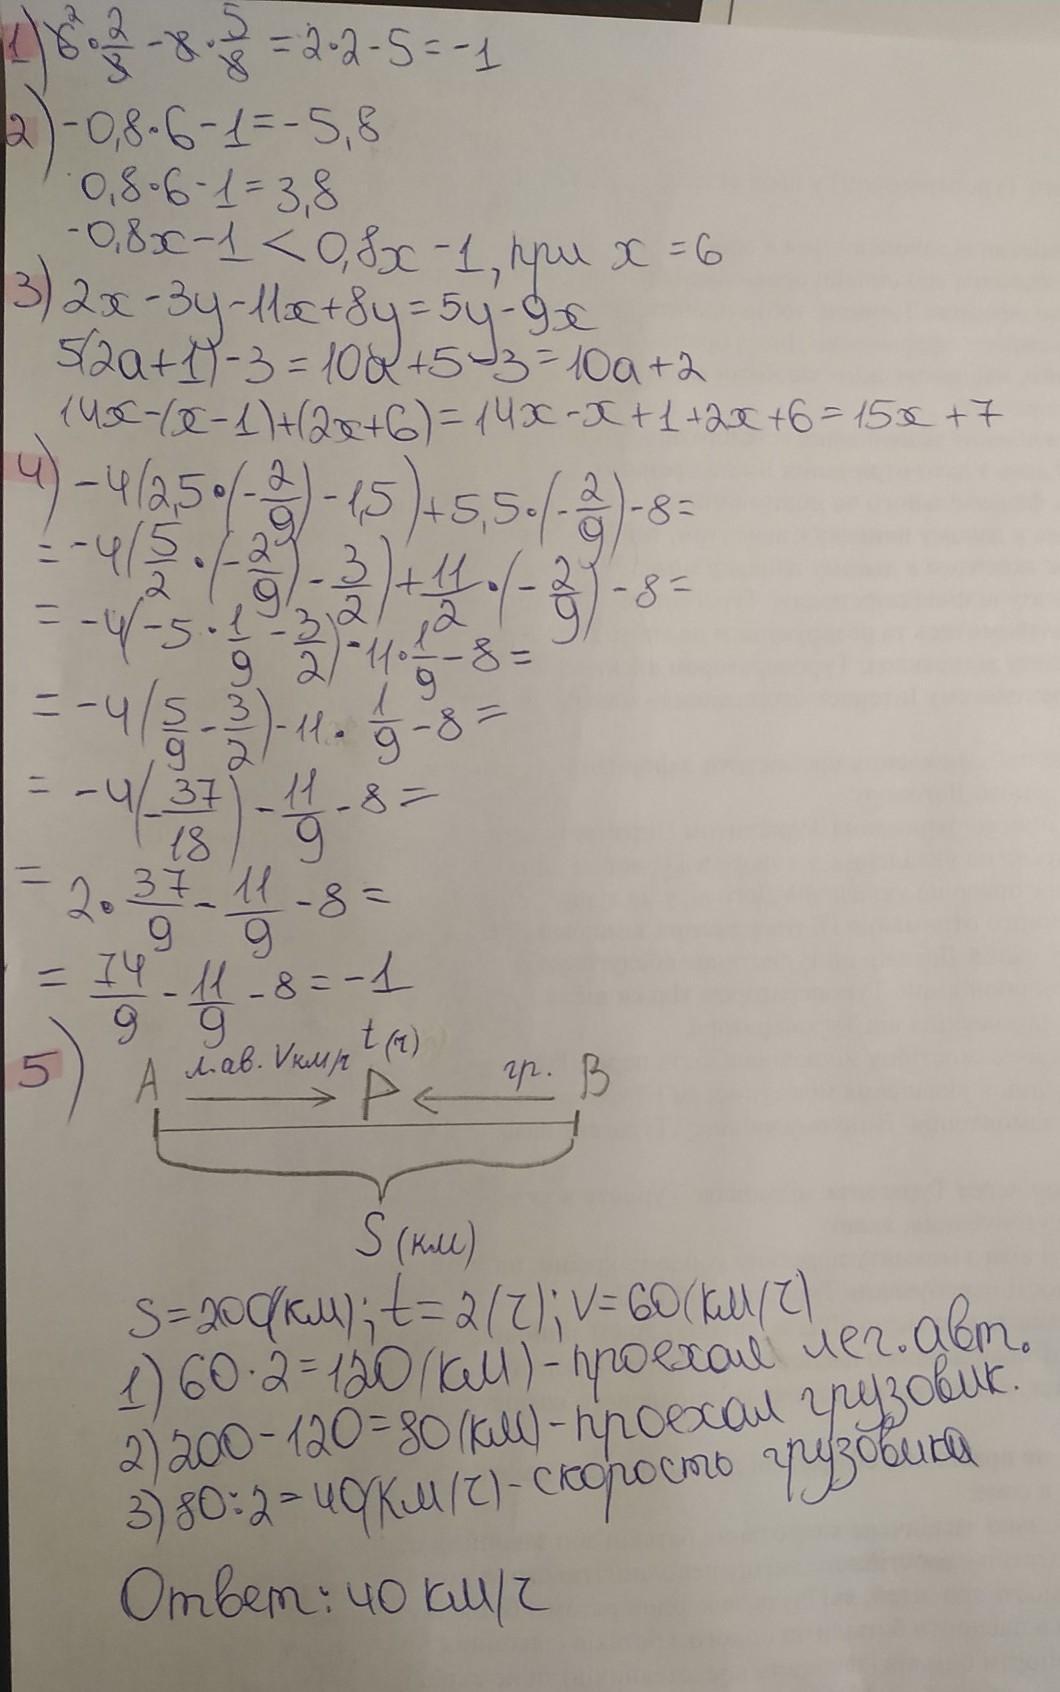 1) 6² · 2/3 - 8 · 5/8 = 2·2 - 5 = -1
2) -0,8·6 - 1 = -5,8
0,8·6 - 1 = 3,8
-0,8x - 1 < 0,8x - 1, при x = 6
3) 2x - 3y - 11x + 8y = 5y - 9x
5(2a+1) - 3 = 10a + 5 - 3 = 10a + 2
14x - (x - 1) + (2x + 6) = 14x - x + 1 + 2x + 6 = 15x + 7
4) -4(2,5·(-2/9) - 1,5) + 5,5·(-2/9) - 8 =
= -4(5/2 · (-2/9) - 3/2) + 11/2 · (-2/9) - 8 =
= -4(-5 · 1/9 - 3/2) - 11 · 1/9 - 8 =
= -4(5/9 - 3/2) - 11 · 1/9 - 8 =
= -4(-37/18) - 11/9 - 8 =
= 2 · 37/9 - 11/9 - 8 =
= 74/9 - 11/9 - 8 = -1
5) A л.ав. Vкм/ч t(ч) P гр. B
S (км)
S = 200(км); t = 2(ч); V = 60(км/ч)
1) 60·2 = 120(км) - проехал лег. авт.
2) 200 - 120 = 80(км) - проехал грузовик.
3) 80:2 = 40(км/ч) - скорость грузовика
Ответ: 40 км/ч